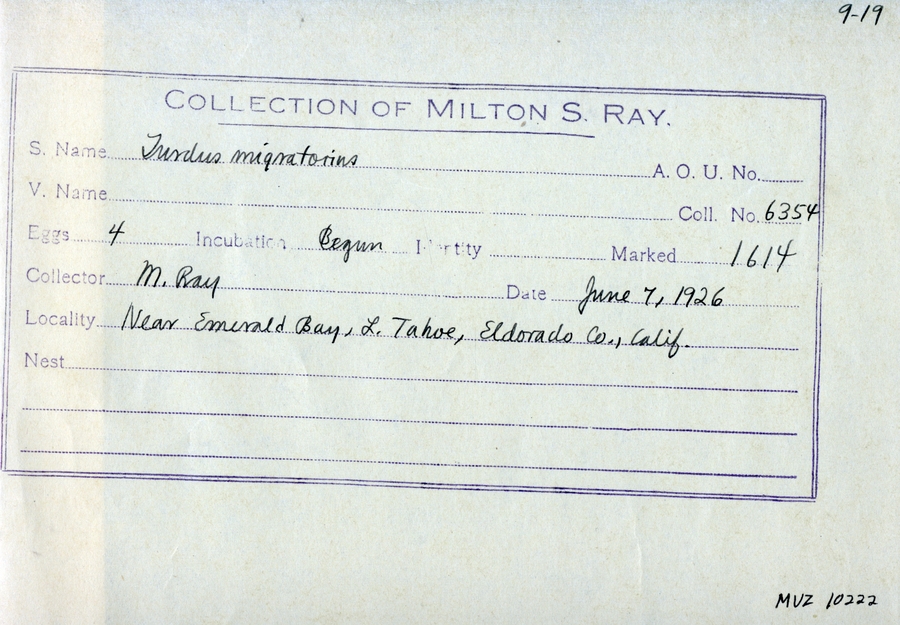 9-19
COLLECTION OF MILTON S. RAY.
S. Name Turdus migratorius A. O. U. No.
V. Name Coll. No. 6354
Eggs 4 Incubation Begun Identity Marked 1614
Collector M. Ray Date June 7, 1926
Locality Near Emerald Bay, L. Tahoe, Eldorado Co., Calif.
Nest
MVZ 10222